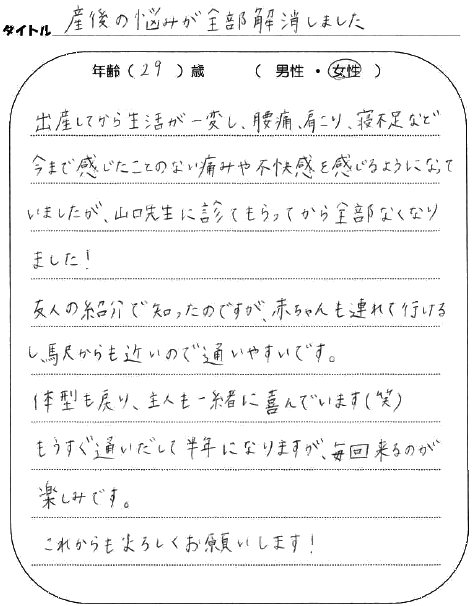 タイトル 産後の悩みが全部解消しました
年齢（29）歳 （ 男性 ・ 女性 ）
出産してから生活が一変し、腰痛、肩こり、寝不足など
今まで感じたことのない痛みや不快感を感じるようになって
いましたが、山口先生に診てもらってから全部なくなり
ました！
友人の紹介で知ったのですが、赤ちゃんも連れて行ける
し、駅からも近いので通いやすいです。
体型も戻り、主人も一緒に喜んでいます(笑)
もうすぐ通いだして半年になりますが、毎回来るのが
楽しみです。
これからもよろしくお願いします！